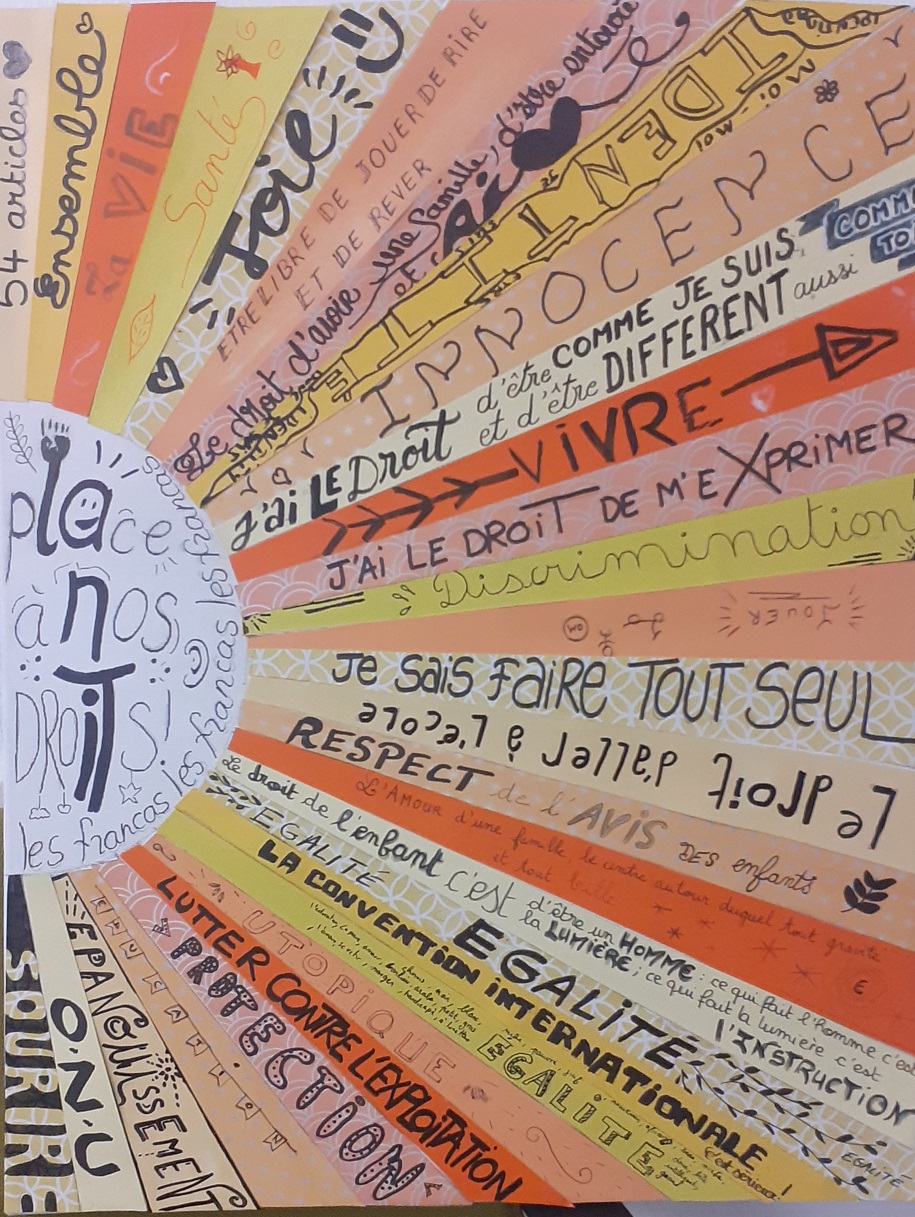 54 articles
Ensemble
La ViE
Santé
Joie
ETRE LIBRE DE JOUER DE RIRE
ET DE REVER
Le droit d'avoir une famille, d'être entouré
et
IDENTITE
INNOCENCE
J'ai LE Droit d'être COMME JE SUIS
et d'être DIFFERENT aussi
COMME
VIVRE
J'Ai LE DROiT DE M'EXPRiMER
Discrimination
JOUER
Je sais faire TOUT SEUL
Le droit d'aller à l'école
RESPECT de l'AVIS DES enfants
L'AMOUR d'une famille, le centre autour duquel tout gravite
et tout brille
Le droit de l'enfant c'est d'être un HOMME: ce qui fait l'Homme c'est
la LUMIÈRE; ce qui fait la lumière c'est
l'INSTRUCTION
EGALITÉ EGALITÉ EGALITÉ
LA CONVENTION iNTERNATIONALE
EGALITE
UTOPIQUE
LUTTER CONTRE L'EXPLOITATION
PROTECTION
EPANOUISSEMENT
O.N.U
SOURIRE
place
à nos
DROiTS!
les francas les francas les francas les francas